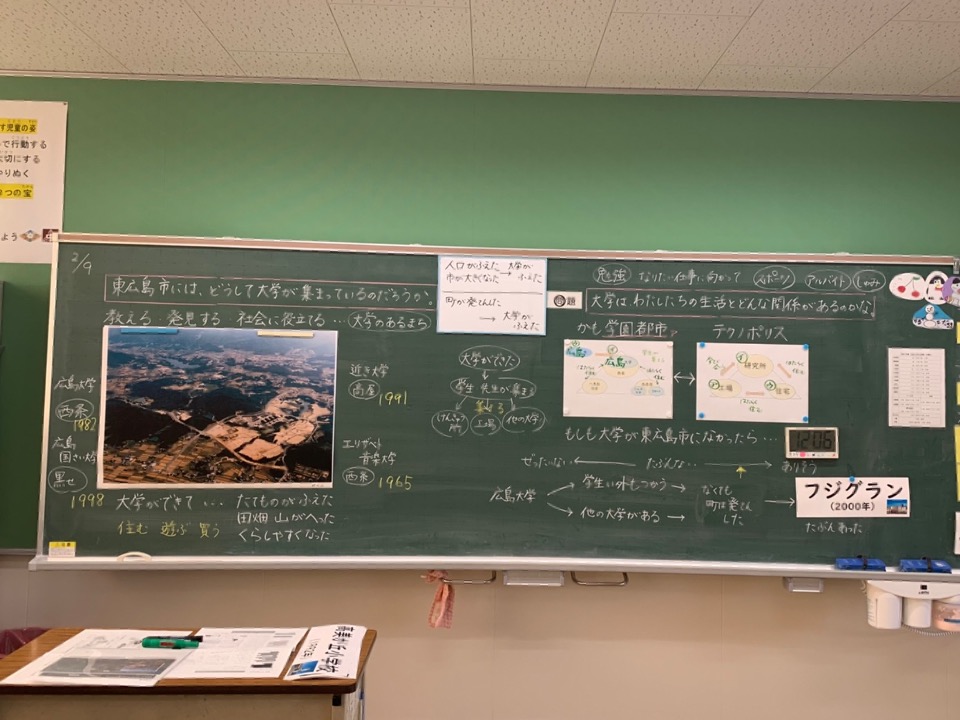 す児童の姿
で行動する
大切にする
やりぬく
つの宝
よう
2/9
東広島市には、どうして大学が集まっているのだろうか。
教える 発見する 社会に役立てる…大学のあるまち
人口がふえた→大学がふえた
市が大きくなった
町が発てんした
→大学がふえた
題
勉強 なりたい仕事に向かって スポーツ アルバイト しゅみ
大学は、わたしたちの生活とどんな関係があるのかな
かも学園都市
テクノポリス
広島大学
西条
1982
広島国さい大学
黒せ
1998
近き大学
高屋
1991
エリザベト音楽大学
西条
1965
大学ができた
学生 先生が集まる
集まる
けんきゅう所 工場 他の大学
広島
研究所
工場
住宅
もしも大学が東広島市になかったら…
12:06
ぜったいない ← たぶんない → ありそう
広島大学
学生い外もつかう
他の大学がある
なくても町は発てんした
フジグラン
(2000年)
たぶんあった
大学ができて… たてものがふえた
田畑 山がへった
くらしやすくなった
住む 遊ぶ 買う
高美が丘小学校